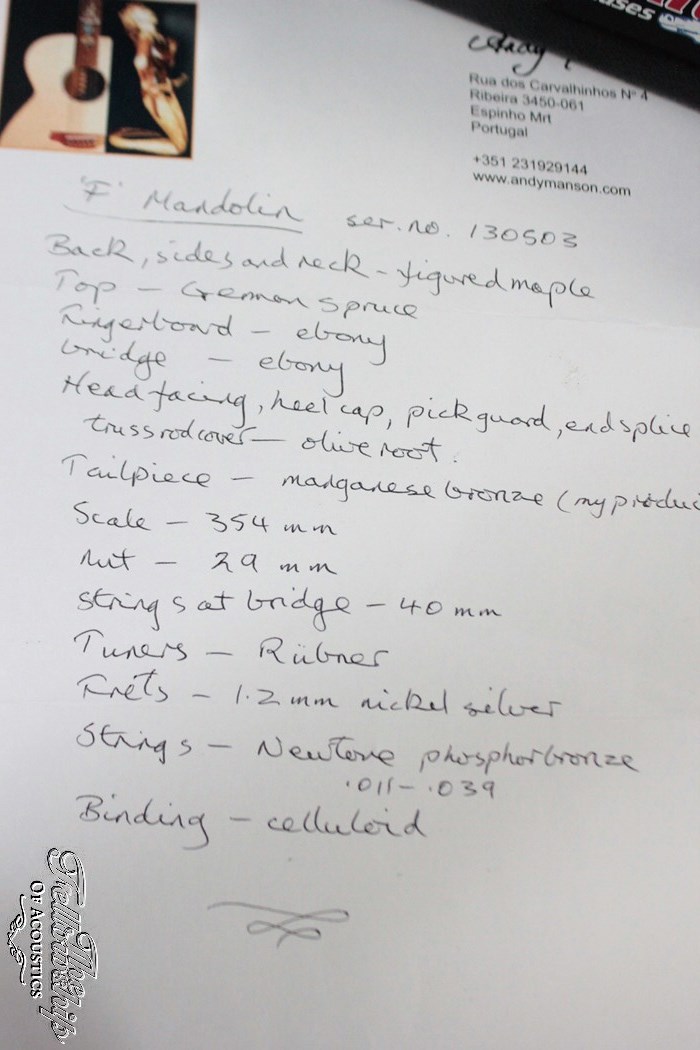 Andy
Rua dos Carvalhinhos Nº 4
Ribeira 3450-061
Espinho Mrt
Portugal
+351 231929144
www.andymanson.com
'F' Mandolin ser. no. 130503
Back, sides and neck - figured maple
Top - German Spruce
Fingerboard - ebony
bridge - ebony
Head facing, heel cap, pickguard, end splice
truss rod cover - olive root.
Tailpiece - manganese bronze (my produc
Scale - 354 mm
Nut - 29 mm
Strings at bridge - 40 mm
Tuners - Rübner
Frets - 1.2 mm nickel silver
Strings - Newtone phosphor bronze
.011 - .039
Binding - celluloid
The
Fellowship
Of Acoustics